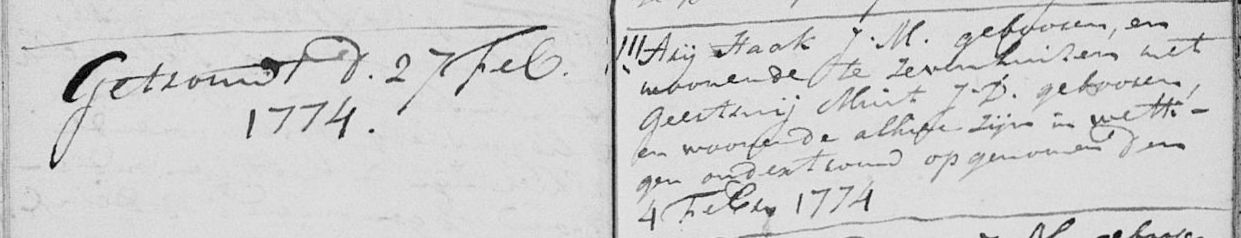 Getrouwt d. 27 Feb.
1774.
!!! Arij Haak J. M. gebooren, en
woonende te Zevenhuisen met
Geertruij Muit J. D. gebooren,
en woonende alhier zijn in wetti-
gen ondertrouw opgenomen den
4 Febr. 1774